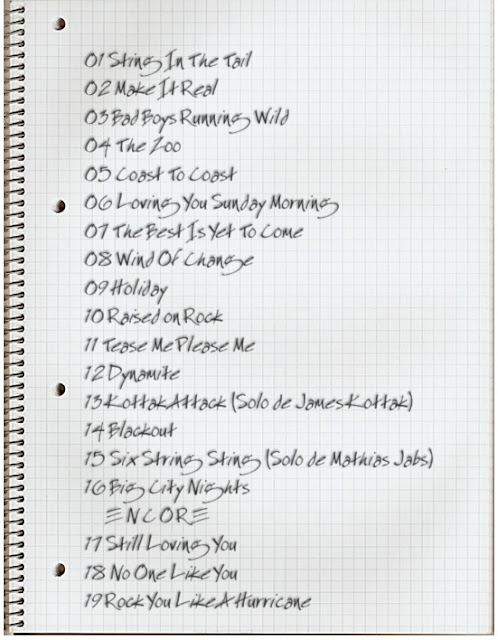 01 Sting In The Tail
02 Make It Real
03 Bad Boys Running Wild
04 The Zoo
05 Coast To Coast
06 Loving You Sunday Morning
07 The Best Is Yet To Come
08 Wind Of Change
09 Holiday
10 Raised on Rock
11 Tease Me Please Me
12 Dynamite
13 Kottak Attack (Solo de James Kottak)
14 Blackout
15 Six String Sting (Solo de Mathias Jabs)
16 Big City Nights
ENCORE
17 Still Loving You
18 No One Like You
19 Rock You Like A Hurricane